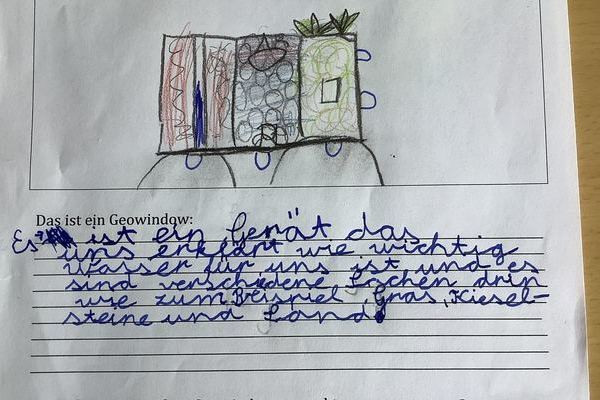 Das ist ein Geowindow:
Es ist ein Gerät das
uns erklärt wie wichtig
wasser für uns ist und es
sind verschiedene Sachen drin
wie zum Beispiel Gras, Kiesel-
steine und Sand